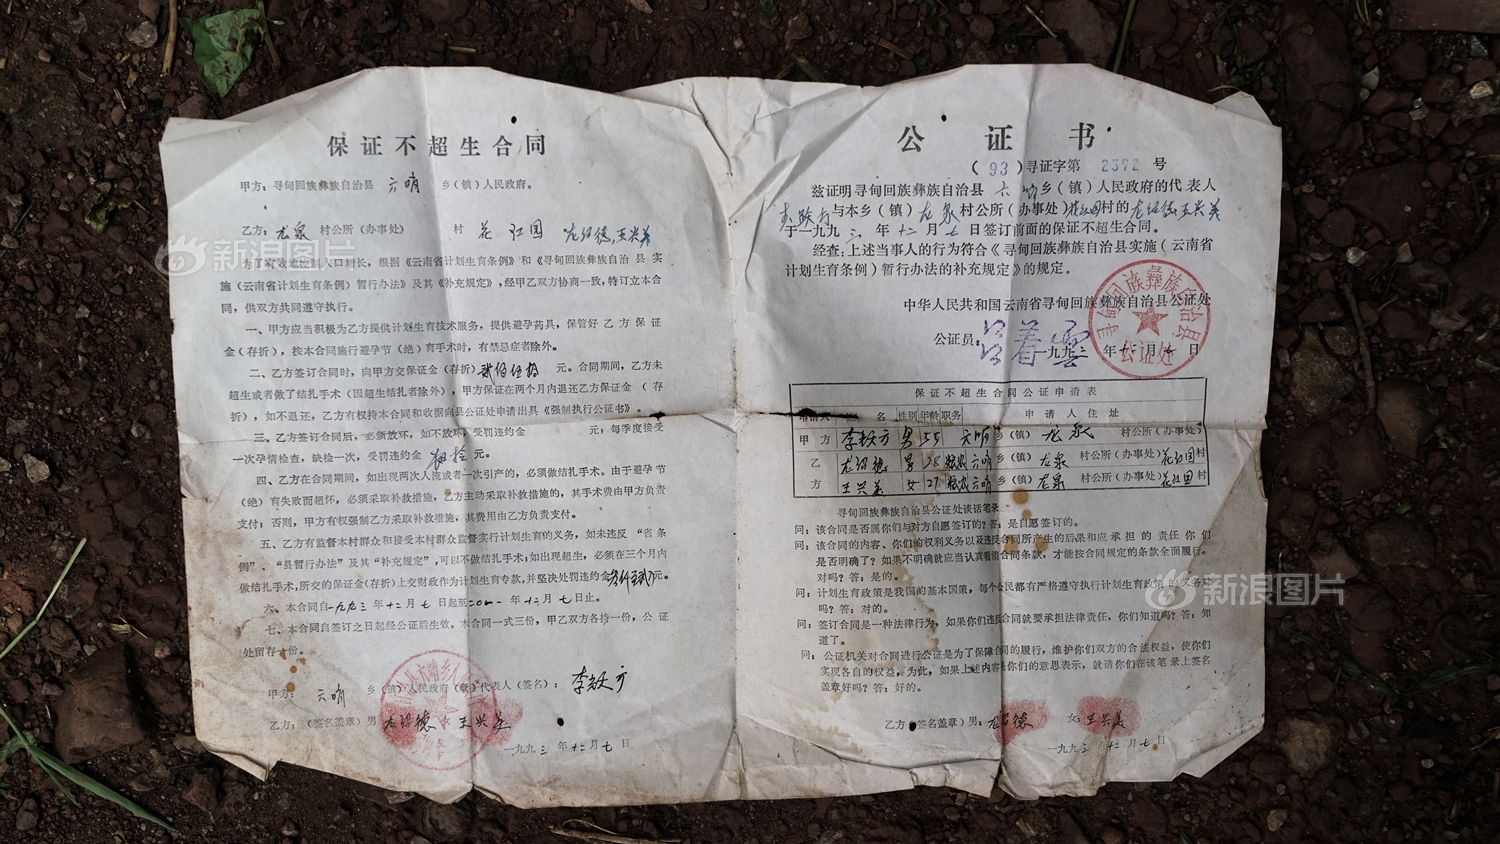 保证不超生合同
甲方：寻甸回族彝族自治县 六哨 乡（镇）人民政府。
乙方：龙泉 村公所（办事处） 村 花红园 龙绍德，王兴美
为了有效地控制人口增长，根据《云南省计划生育条例》和《寻甸回族彝族自治县实
施（云南省计划生育条例）暂行办法》及其《补充规定》，经甲乙双方协商一致，特订立本合
同，供双方共同遵守执行。
一、甲方应当积极为乙方提供计划生育技术服务，提供避孕药具，保管好乙方保证
金（存折），按本合同施行避孕节（绝）育手术时，有禁忌症者除外。
二、乙方签订合同时，向甲方交保证金（存折）贰佰伍拾 元。合同期间，乙方未
超生或者做了结扎手术（因超生结扎者除外），甲方保证在两个月内退还乙方保证金（存
折），如不退还，乙方有权持本合同和收据向县公证处申请出具《强制执行公证书》。
三、乙方签订合同后，必须放环，如不放环，受罚违约金 元；每季度接受
一次孕情检查，缺检一次，受罚违约金 拾元。
四、乙方在合同期间，如出现两次人流或者一次引产的，必须做结扎手术。由于避孕节
（绝）育失败而超怀，必须采取补救措施，乙方主动采取补救措施的，其手术费由甲方负责
支付；否则，甲方有权强制乙方采取补救措施，其费用由乙方负责支付。
五、乙方有监督本村群众和接受本村群众监督实行计划生育的义务，如未违反“省条
例”、“县暂行办法”及其“补充规定”，可以不做结扎手术；如出现超生，必须在三个月内
做结扎手术，所交的保证金（存折）上交财政作为计划生育专款，并坚决处罚违约金 元。
六、本合同自一九九三年十二月七日起至二〇一一年十二月七日止。
七、本合同自签订之日起经公证后生效。本合同一式三份，甲乙双方各持一份，公证
处留存一份。
甲方： 六哨 乡（镇）人民政府（章）代表人（签名）：李跃方
乙方：（签名盖章）男 龙绍德 女 王兴美
一九九三年十二月七日
公证书
（93）寻证字第 2372 号
兹证明寻甸回族彝族自治县 六哨 乡（镇）人民政府的代表人
李跃方与本乡（镇）龙泉村公所（办事处）花红园村的龙绍德王兴美
于一九九三年十二月七日签订前面的保证不超生合同。
经查：上述当事人的行为符合《寻甸回族彝族自治县实施（云南省
计划生育条例）暂行办法的补充规定》的规定。
中华人民共和国云南省寻甸回族彝族自治县公证处
公证员：
一九九三年十二月七日
寻甸回族彝族自治县
公证处
保证不超生合同公证申请表
申请人 名 性别 年龄 职务 申请人住址
甲方 李跃方 男 55 六哨乡（镇） 龙泉 村公所（办事处）
乙 龙绍德 男 28 农民 六哨乡（镇） 龙泉 村公所（办事处）花红园村
方 王兴美 女 27 农民 六哨乡（镇） 龙泉 村公所（办事处）花红园村
寻甸回族彝族自治县公证处谈话笔录
问：该合同是否属你们与对方自愿签订的？答：是自愿签订的。
问：该合同的内容、你们的权利义务以及违反合同所产生的后果和应承担的责任你们
是否明确了？如果不明确就应当认真看清合同条款，才能按合同规定的条款全面履行。
对吗？答：是的。
问：计划生育政策是我国的基本国策，每个公民都有严格遵守执行计划生育政策的义务对
吗？答：对的。
问：签订合同是一种法律行为，如果你们违反合同就要承担法律责任，你们知道吗？答：知
道了。
问：公证机关对合同进行公证是为了保障合同的履行，维护你们双方的合法权益，使你们
实现各自的权益。为此，如果上述内容是你们的意思表示，就请你们在该笔录上签名
盖章好吗？答：好的。
乙方（签名盖章）男：龙绍德 女：王兴美
一九九三年十二月七日
新浪图片
新浪图片